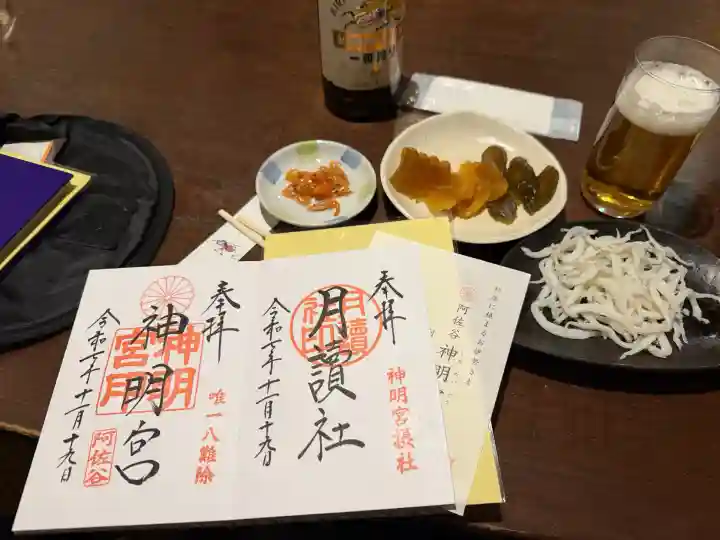 奉拝
月讀社
月讀社印
神明宮摂社
令和七年十一月十九日
奉拝
神明宮
神明宮
唯一八難除
阿佐谷
令和七年十一月十九日
阿佐谷 神明
一番搾り